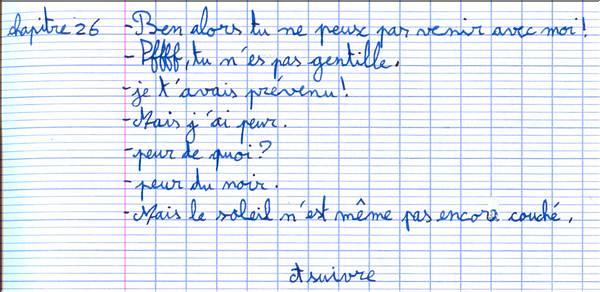 chapitre 26 -Ben alors tu ne peux pas venir avec moi!
-Pffff, tu n'es pas gentille.
-je t'avais prévenu!
-Mais j'ai peur.
-peur de quoi?
-peur du noir.
-Mais le soleil n'est même pas encore couché.
A suivre